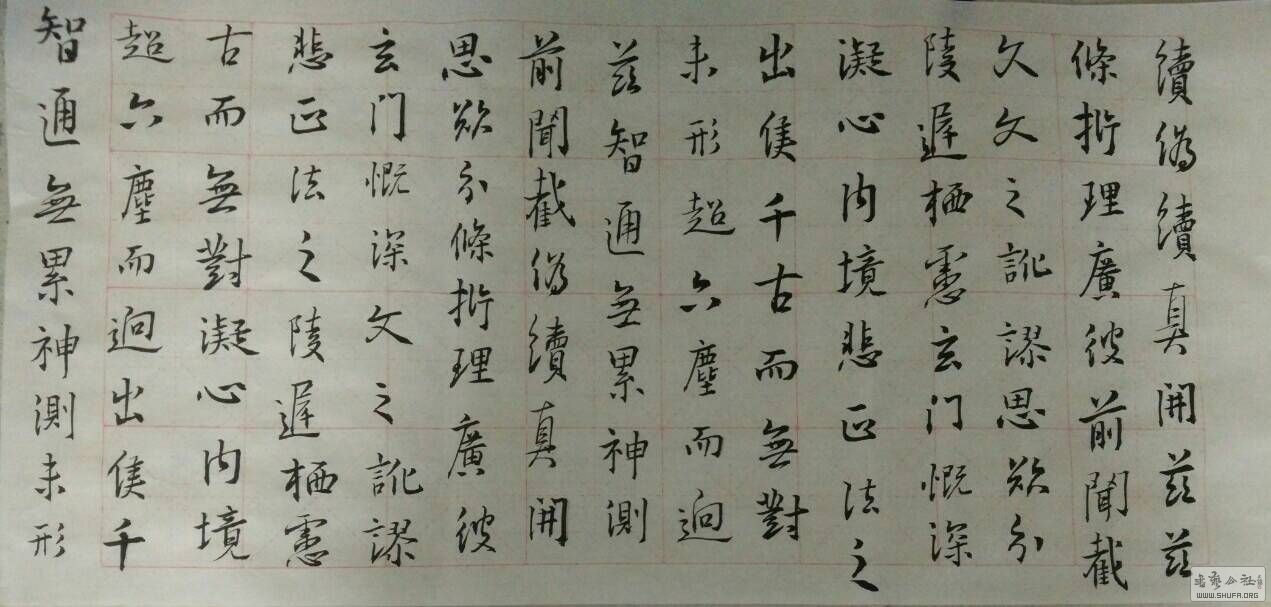 智通無累神測未形
超六塵而迥出隻千
古而無對凝心内境
悲正法之陵遲栖慮
玄門慨深文之訛謬
思欲分條析理廣彼
前聞截偽續真開
茲智通無累神測
未形超六塵而迥
出隻千古而無對
凝心内境悲正法之
陵遲栖慮玄門慨深
文文之訛謬思欲分
條析理廣彼前聞截
續偽續真開茲茲
WWW.SHUFA.ORG